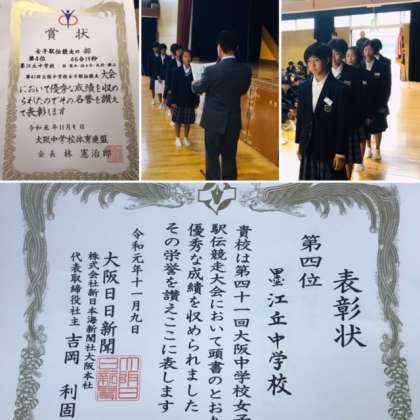 賞状
女子駅伝競走の部
第4位 46分19秒
墨江丘中学校
第41回大阪中学校女子駅伝競走大会
において優秀な成績を収め
られたのでその名誉を讃え
て表彰します
令和元年11月9日
大阪中学校体育連盟
会長 林 憲治郎
表彰状
第四位
墨江丘中学校
貴校は第四十一回大阪中学校女子
駅伝競走大会において頭書のとおり
優秀な成績を収められました
その栄誉を讃えここに表します
令和元年十一月九日
大阪日日新聞
株式会社新日本海新聞社大阪本社
代表取締役社主 吉岡 利固